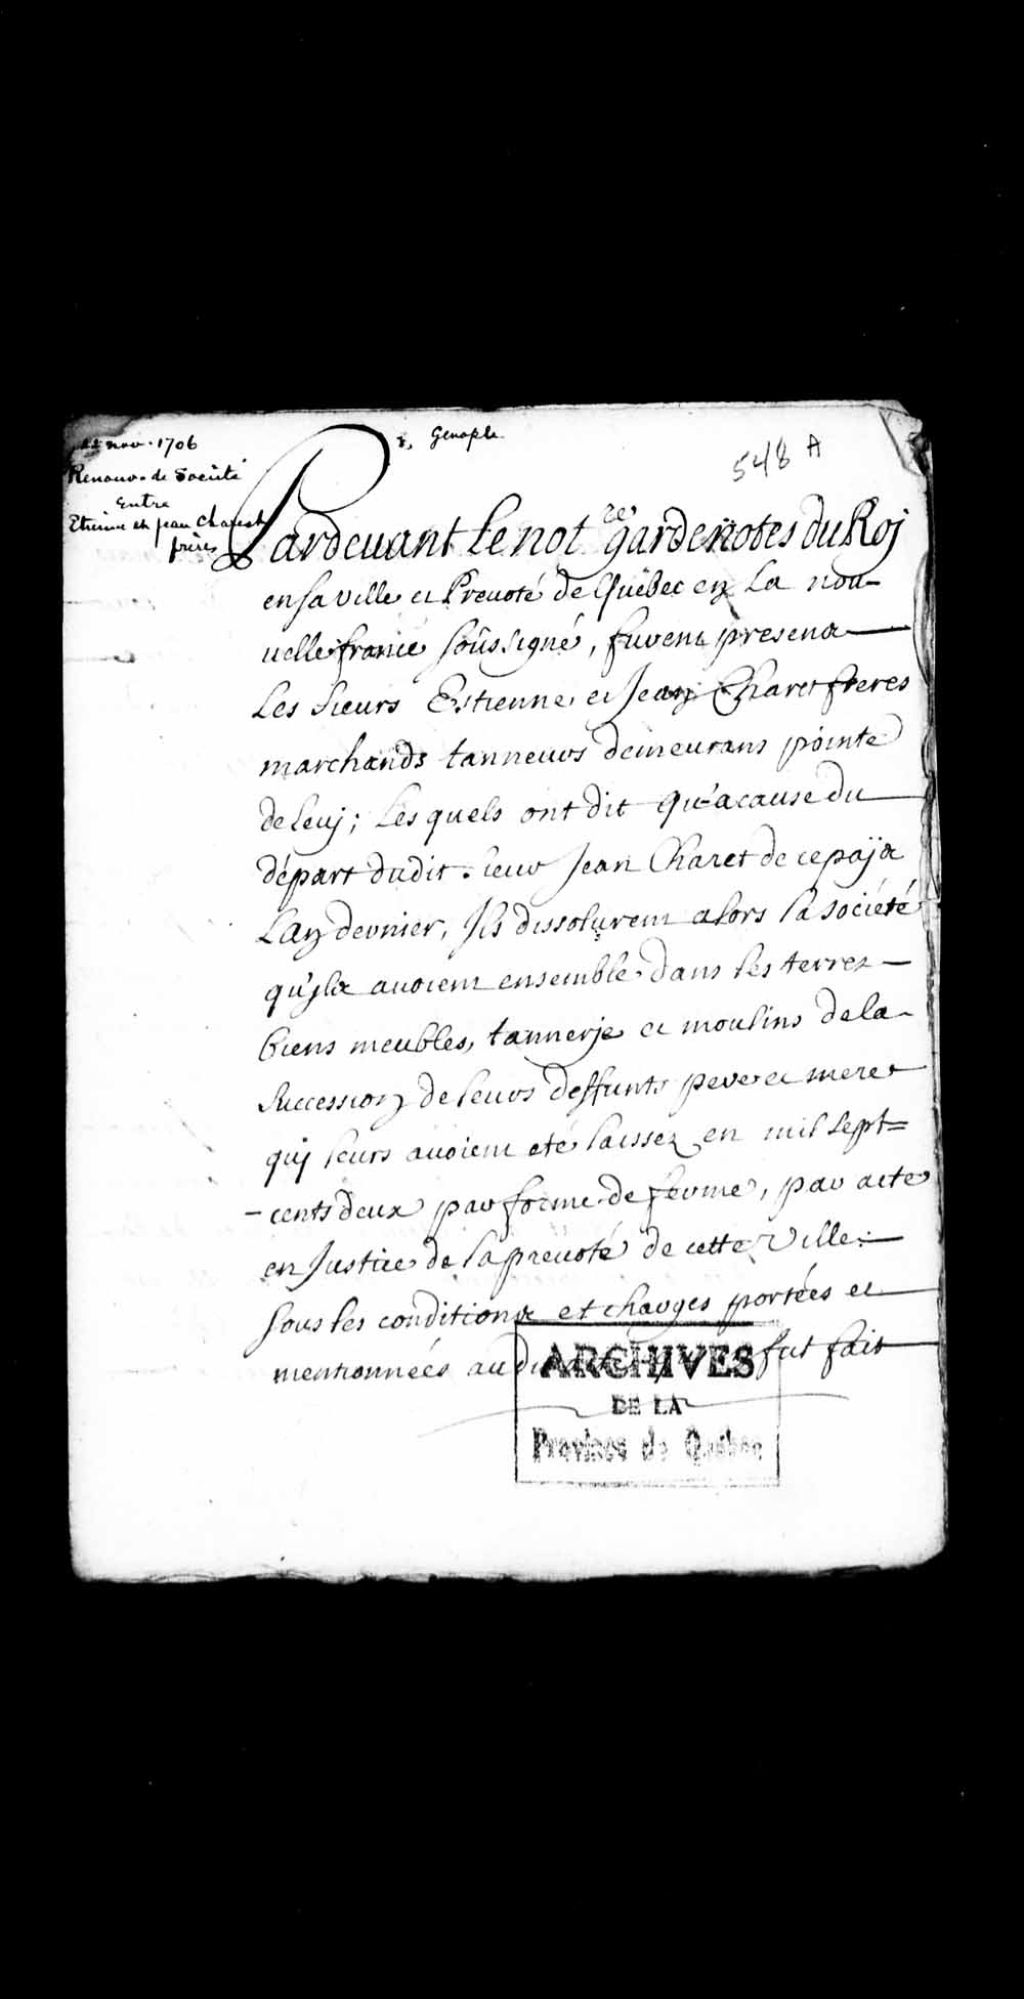 nov. 1706
Renouv. de Société
entre
Etienne et Jean Charest
frères
Genaple
548 A
Pardeuant Le not.re gardenotes du Roj
en sa ville et Preuoté de Québec en La nou-
uelle france soussigné, furent presens
Les Sieurs Estienne et Jean Charet freres
marchands tanneurs demeurans pointe
de leuj; Lesquels ont dit qu'acause du
départ dudit sieur Jean Charet de ce païs
L'an dernier, Ils dissolurent alors la société
qu'ils auoient ensemble dans les terres
biens meubles, tannerje et moulins de la
succession de leurs deffunts pere et mere
quj leurs auoient eté laissez en mil sept=
-cents deux par forme de ferme, par acte
en Justice de la preuoté de cette Ville
sous les conditions et charges portées et
mentionnées au fut fait
ARCHIVES
DE LA
Province de Québec